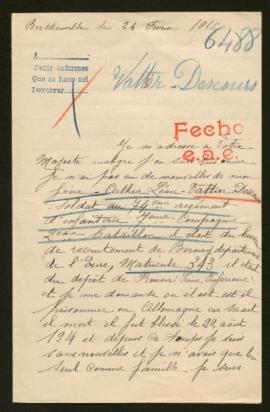 le 24 Février 1915
6488
A
Pedir informes
Que se hace así
Devolver
Vattier-Descours
Fecho
e.a.e.
Je m'adresse a Votre
Majesté malgré j'en suis
Je n'ai pas eu de nouvelles de mon
frère Arthur Léon Vattier-Descours
Soldat au 74ème régiment
d'infanterie 7ème Compagnie
2ème bataillon il était du bureau
de recrutement de Bernay département
de l'Eure, Matricule 393 il était
du dépôt de Rouen Seine Inférieure
et je me demande où il est est il
prisonnier en Allemagne ou serait
il mort il fut blessé le 22 août
1914 et depuis ce temps je suis
sans nouvelles et je n'avais que lui
seul comme famille je suis